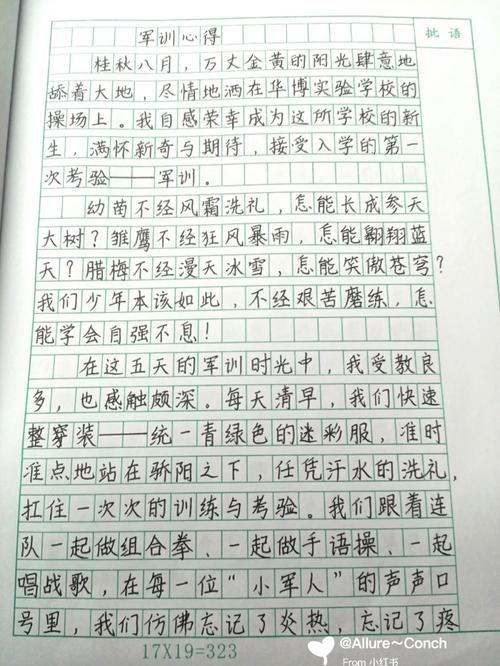 军训心得
批语
桂秋八月，万丈金黄的阳光肆意地
舔着大地，尽情地洒在华博实验学校的
操场上。我自感荣幸成为这所学校的新
生，满怀新奇与期待，接受入学的第一
次考验——军训。
幼苗不经风霜洗礼，怎能长成参天
大树？雏鹰不经狂风暴雨，怎能翱翔蓝
天？腊梅不经漫天冰雪，怎能笑傲苍穹？
我们少年本该如此，不经艰苦磨练，怎
能学会自强不息！
在这五天的军训时光中，我受教良
多，也感触颇深。每天清早，我们快速
整穿装——统一青绿色的迷彩服，准时
准点地站在骄阳之下，任凭汗水的洗礼，
扛住一次次的训练与考验。我们跟着连
队一起做组合拳、一起做手语操、一起
唱战歌，在每一位“小军人”的声声口
号里，我们仿佛忘记了炎热，忘记了疼
17X19=323
@Allure～Conch
From 小红书